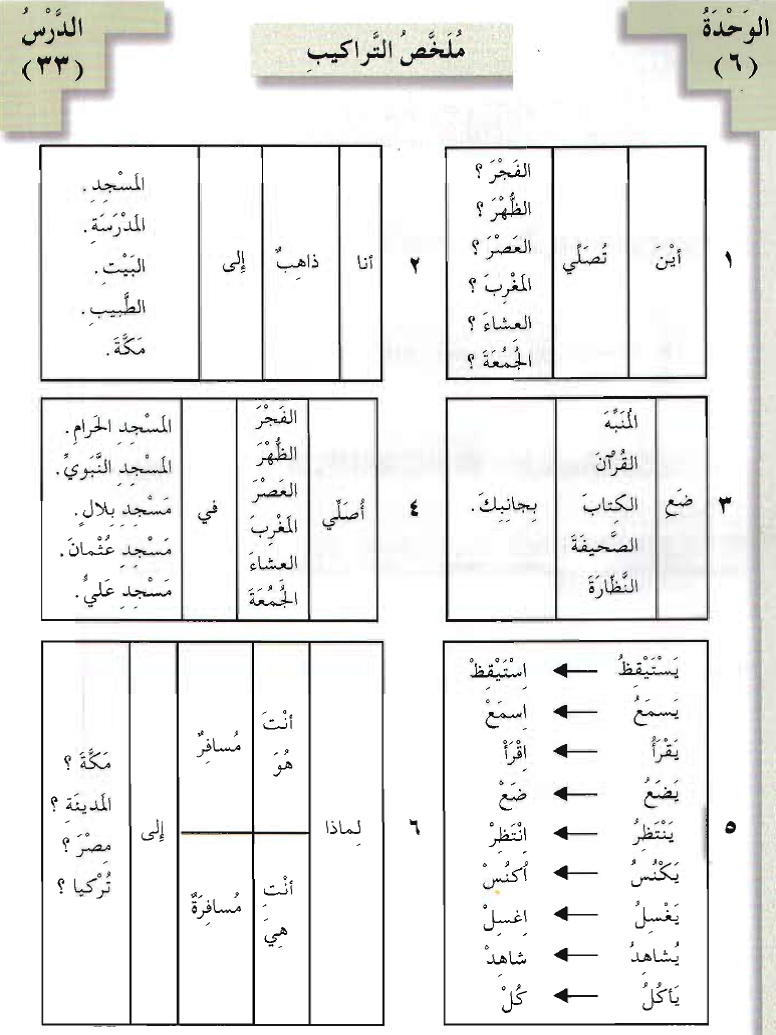 الوَحْدَةُ
(٦)
مُلَخَّصُ التَّراكيبِ
الدَّرْسُ
(٣٣)
١
أيْنَ
تُصَلِّي
الفَجْرَ ؟
الظُّهْرَ ؟
العَصْرَ ؟
المَغْرِبَ ؟
العشاءَ ؟
الجُمُعَةَ ؟
٢
أنا
ذاهِبٌ
إلى
المَسْجِدِ.
المَدْرَسَةِ.
البَيْتِ.
الطَّبيبِ.
مَكَّةَ.
٣
ضَعِ
المُنَبِّهَ
القُرْآنَ
الكِتابَ
الصَّحيفَةَ
النَّظّارَةَ
بِجانِبِكَ.
٤
أُصَلِّي
الفَجْرَ
الظُّهْرَ
العَصْرَ
المَغْرِبَ
العشاءَ
الجُمُعَةَ
في
المَسْجِدِ الحَرامِ.
المَسْجِدِ النَّبَويِّ.
مَسْجِدِ بِلالٍ.
مَسْجِدِ عُثْمانَ.
مَسْجِدِ عَليٍّ.
٥
يَسْتَيْقِظُ ← اِسْتَيْقِظْ
يَسمَعُ ← اِسمَعْ
يَقْرَأُ ← اِقْرَأْ
يَضَعُ ← ضَعْ
يَنْتَظِرُ ← اِنْتَظِرْ
يَكْنُسُ ← اُكنُسْ
يَغْسِلُ ← اِغسِلْ
يُشاهِدُ ← شاهِدْ
يَأكُلُ ← كُلْ
٦
لِماذا
أنْتَ
هُوَ
مُسافِرٌ
أنْتِ
هِيَ
مُسافِرَةٌ
إلى
مَكَّةَ ؟
المَدينَةِ ؟
مِصْرَ ؟
تُرْكيا ؟